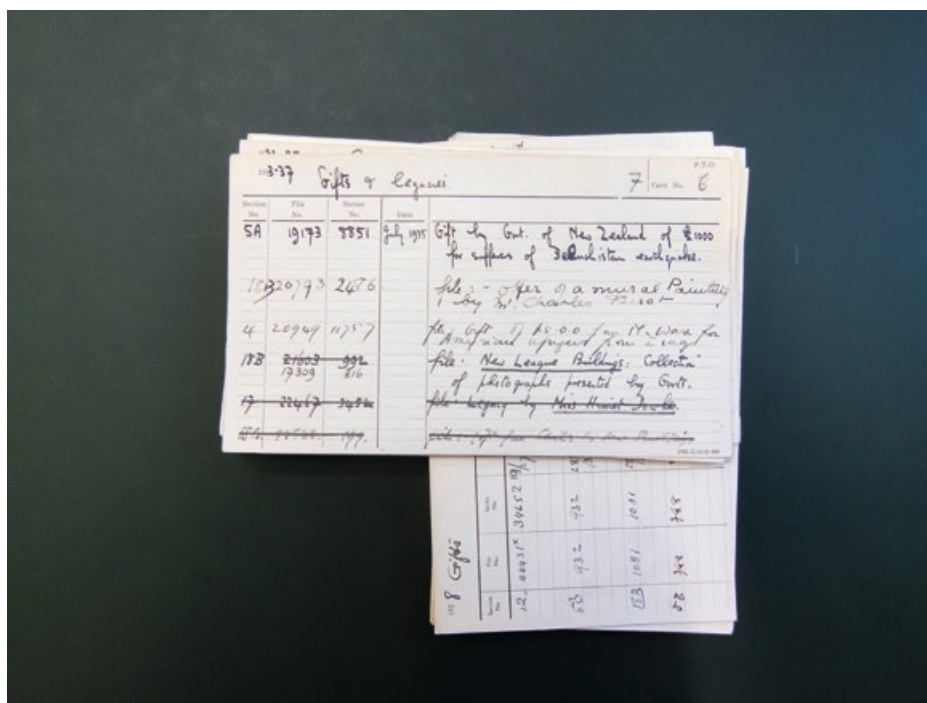 P.T.O.
193 3-37 Gifts & legacies 7 Card No. 6
Section No. File No. Series No. Date
5A 19173 8851 July 1935 Gift by Gvt. of New Zealand of £1000
for suffers of Beluchistan earthquake.
18B 20793 2486 file: - offer of a mural Painting
by Mr. Charles
4 20949 11757 file: Gift of for
American from
18B 21603 992 file: New League Buildings: Collection
17309 316
of photographs presented by Govts.
17 22467 3482 file: Legacy by Miss Harriet
file: gift
193 8 Gifts
Section No. File No. Series No.
12 34652 19/
5B 932 932
15B 1081 1081
5B 368